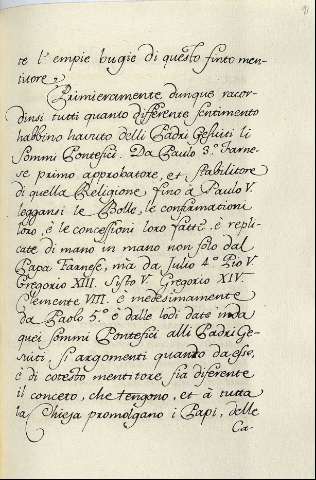 te l'empie bugie di questo finto men-
titore.
Primieramente dunque racor-
dinsi tutti quanto differente sentimento
habbino havuto delli Padri Gesuiti li
Sommi Pontefici. Da Paulo 3.º Farne-
se primo approbatore, et stabilitore
di quella Religione fino à Paulo V.
leggansi le Bolle, le confirmationi
loro, è le concessioni loro fatte, è repli-
cate di mano in mano non solo dal
Papa Farnese, mà da Julio 4.º Pio V.
Gregorio XIII. Sisto V. Gregorio XIV.
Clemente VIII. e medesimamente
da Paolo 5.º è dalle lodi date da
quei Sommi Pontefici alli Padri Ge-
suiti, si argomenti quanto da esse,
è di cotesto mentitore sia diferente
il conceto, che tengono, et à tutta
la Chiesa promolgano i Papi, delle
Ca-